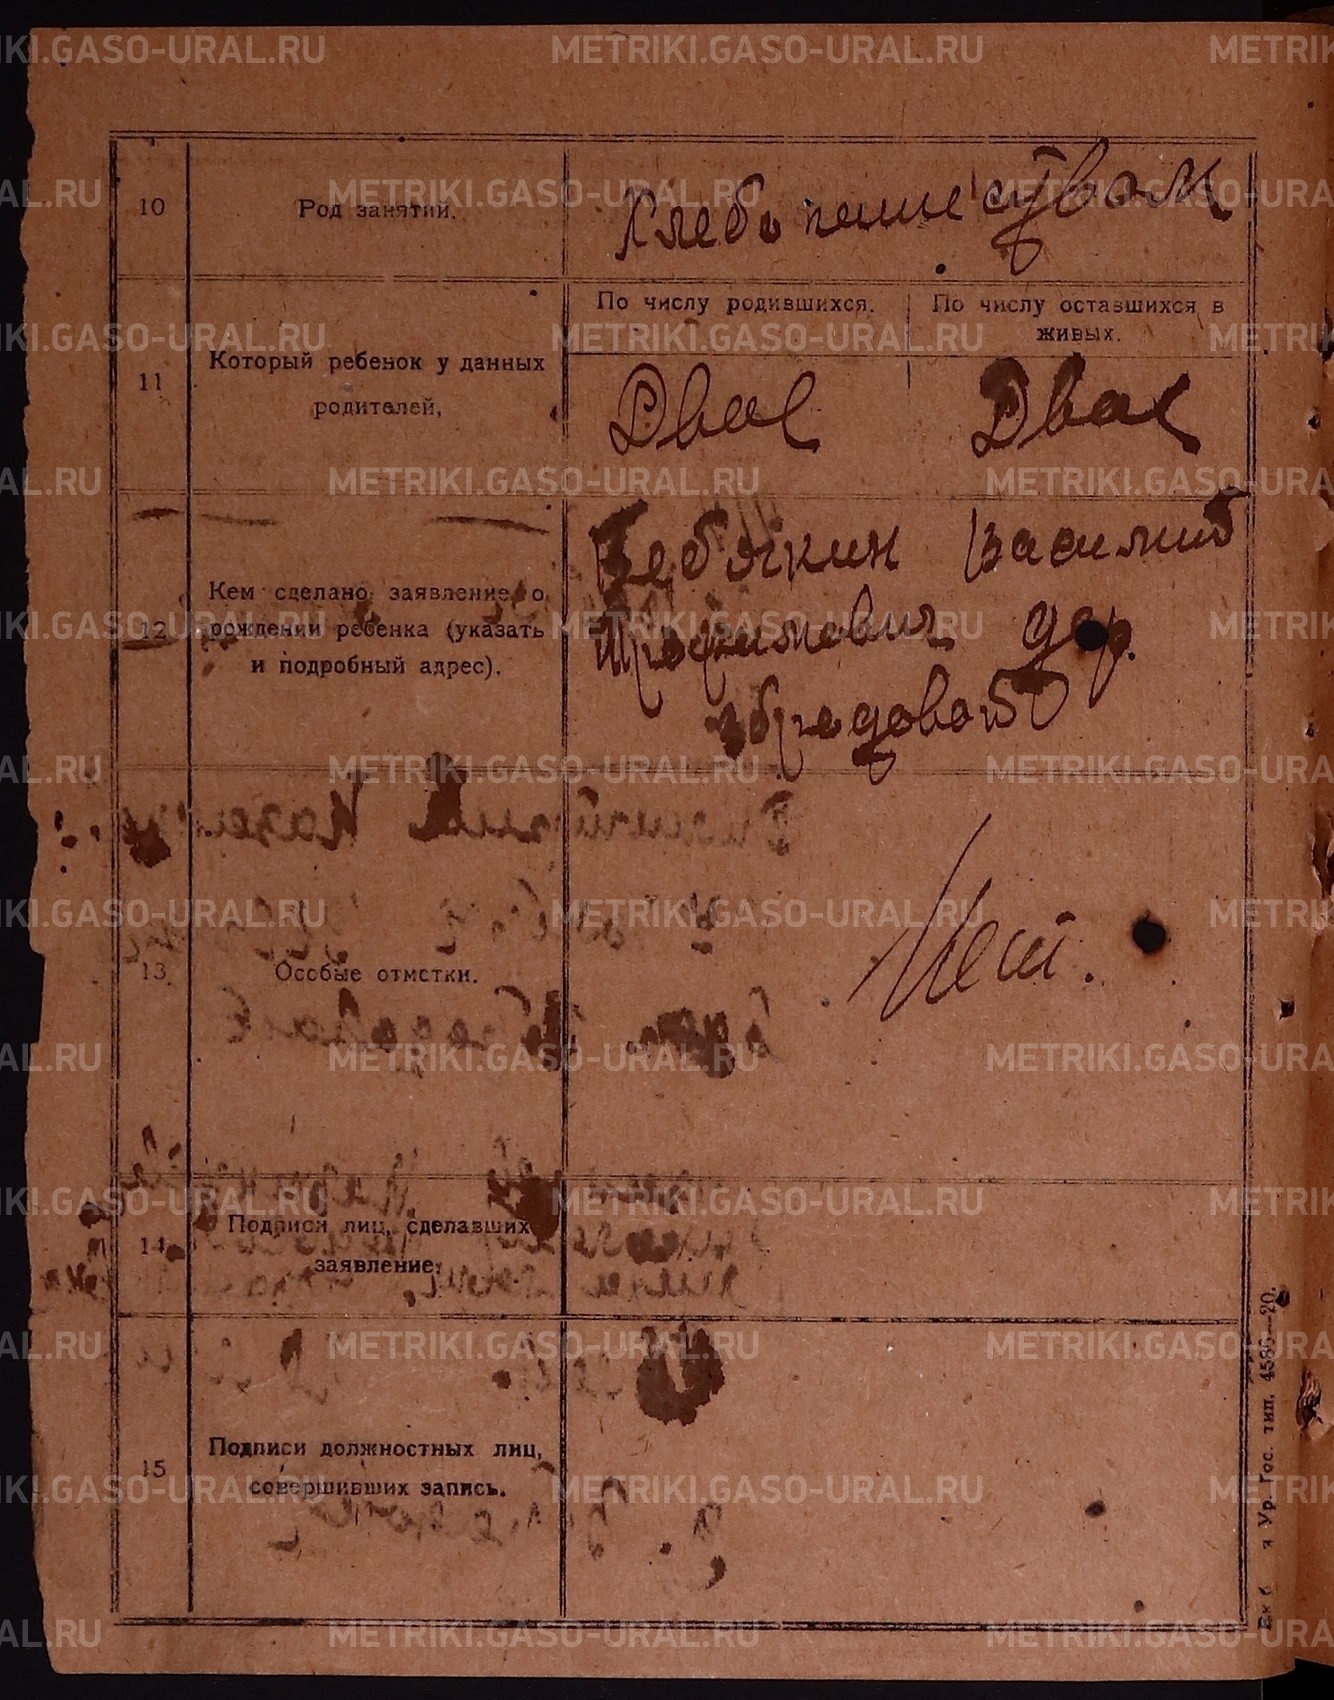 10
Род занятий.
Хлебопашеством
11
Который ребенок у данных
родителей,
По числу родившихся.
По числу оставшихся в
живых.
Два
Два
12
Кем сделано заявление о
рождении ребенка (указать
и подробный адрес).
Василий
Трофимович дер.
13
Особые отметки.
Нет.
14
Подписи лиц, сделавших
заявление.
15
Подписи должностных лиц,
совершивших запись.
Ур. Гос. тип. 4585—20.
METRIKI.GASO-URAL.RU